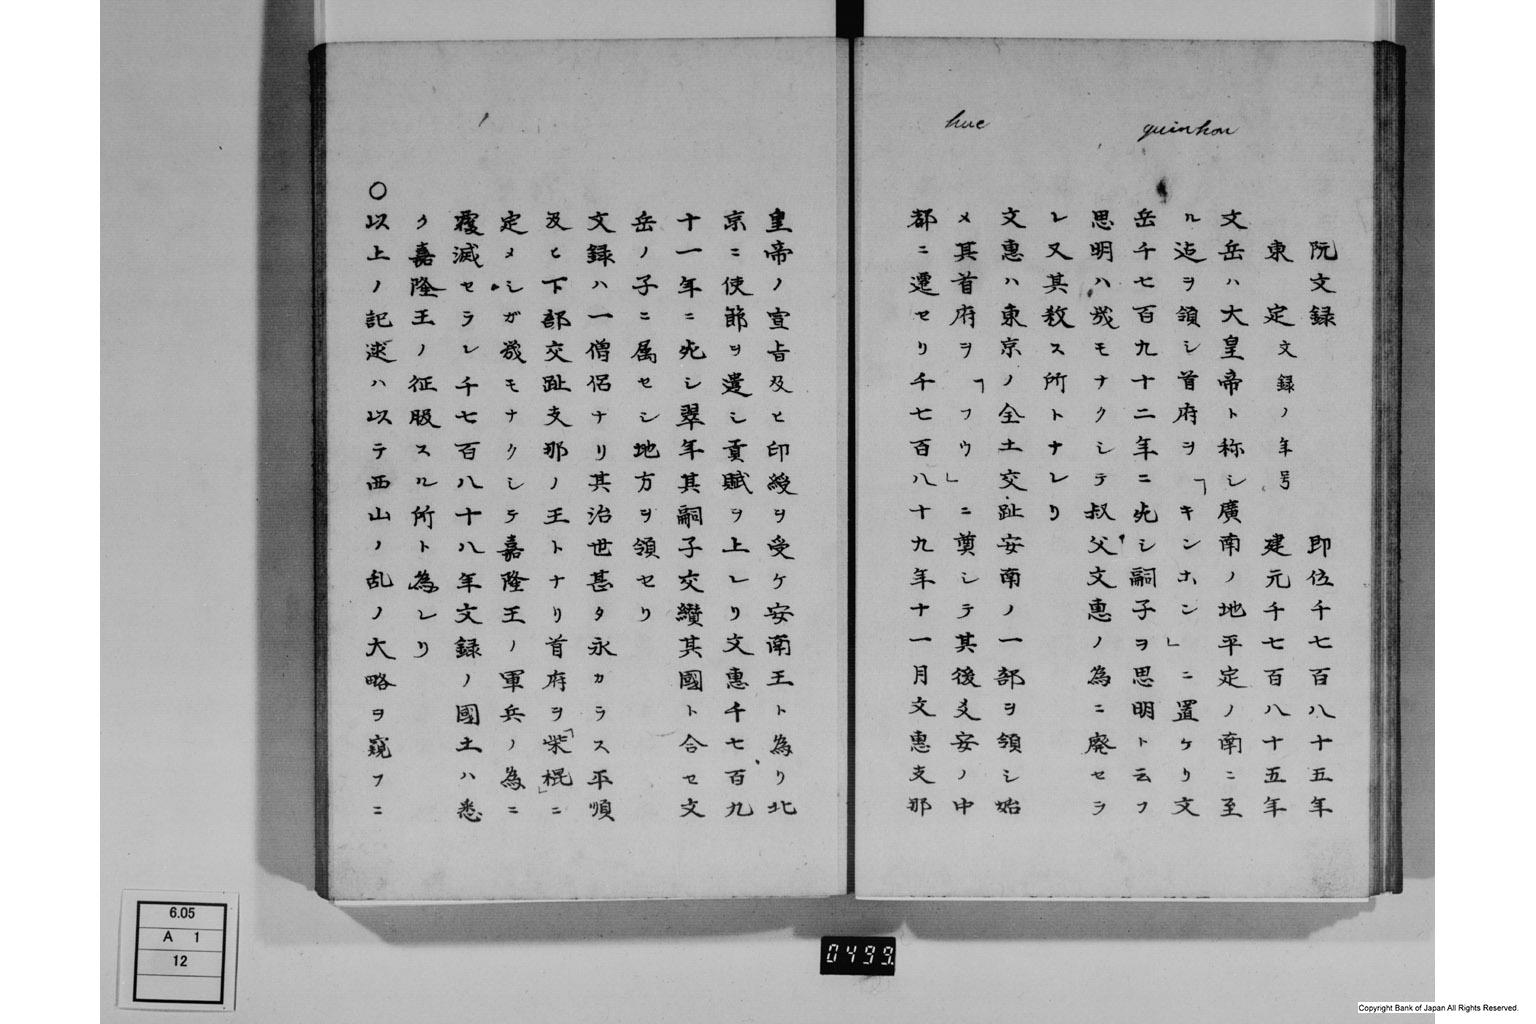 quinhon
hue
阮文録　即位千七百八十五年
東　定文録ノ年号　建元千七百八十五年
文岳ハ大皇帝ト称シ廣南ノ地平定ノ南ニ至
ル迄ヲ領シ首府ヲ「キンホン」ニ置ケリ文
岳千七百九十二年ニ死シ嗣子ヲ思明ト云フ
思明ハ幾モナクシテ叔父文惠ノ為ニ廢セラ
レ又其敎ス所トナレリ
文惠ハ東京ノ全土交趾安南ノ一部ヲ領シ始
メ其首府ヲ「フウ」ニ奠シテ其後乂安ノ中
都ニ遷セリ千七百八十九年十一月文惠支那
皇帝ノ宣旨及ヒ印綬ヲ受ケ安南王ト為リ北
京ニ使節ヲ遣シ貢賦ヲ上レリ文惠千七百九
十一年ニ死シ翠年其嗣子交纉其國ト合セ文
岳ノ子ニ属セシ地方ヲ領セリ
文録ハ一僧侶ナリ其治世甚タ永カラス平順
及ヒ下部交趾支那ノ王トナリ首府ヲ「柴棍」ニ
定メシガ幾モナクシテ嘉隆王ノ軍兵ノ為ニ
覆滅セラレ千七百八十八年文録ノ國土ハ悉
ク嘉隆王ノ征服スル所ト為レリ
○以上ノ記述ハ以テ西山ノ乱ノ大略ヲ窺フニ
0499.
6.05
A 1
12
Copyright Bank of Japan All Rights Reserved.